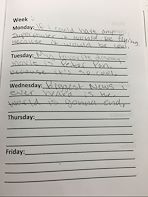 Week -
Monday: If I could have any
superpower it would be flying
because it would be cool.
Tuesday: My favorite
movie is Peter Pan,
because it's so cool.
Wednesday: Biggest News I
ever heard is the
world is gonna end.
Thursday:
Friday: